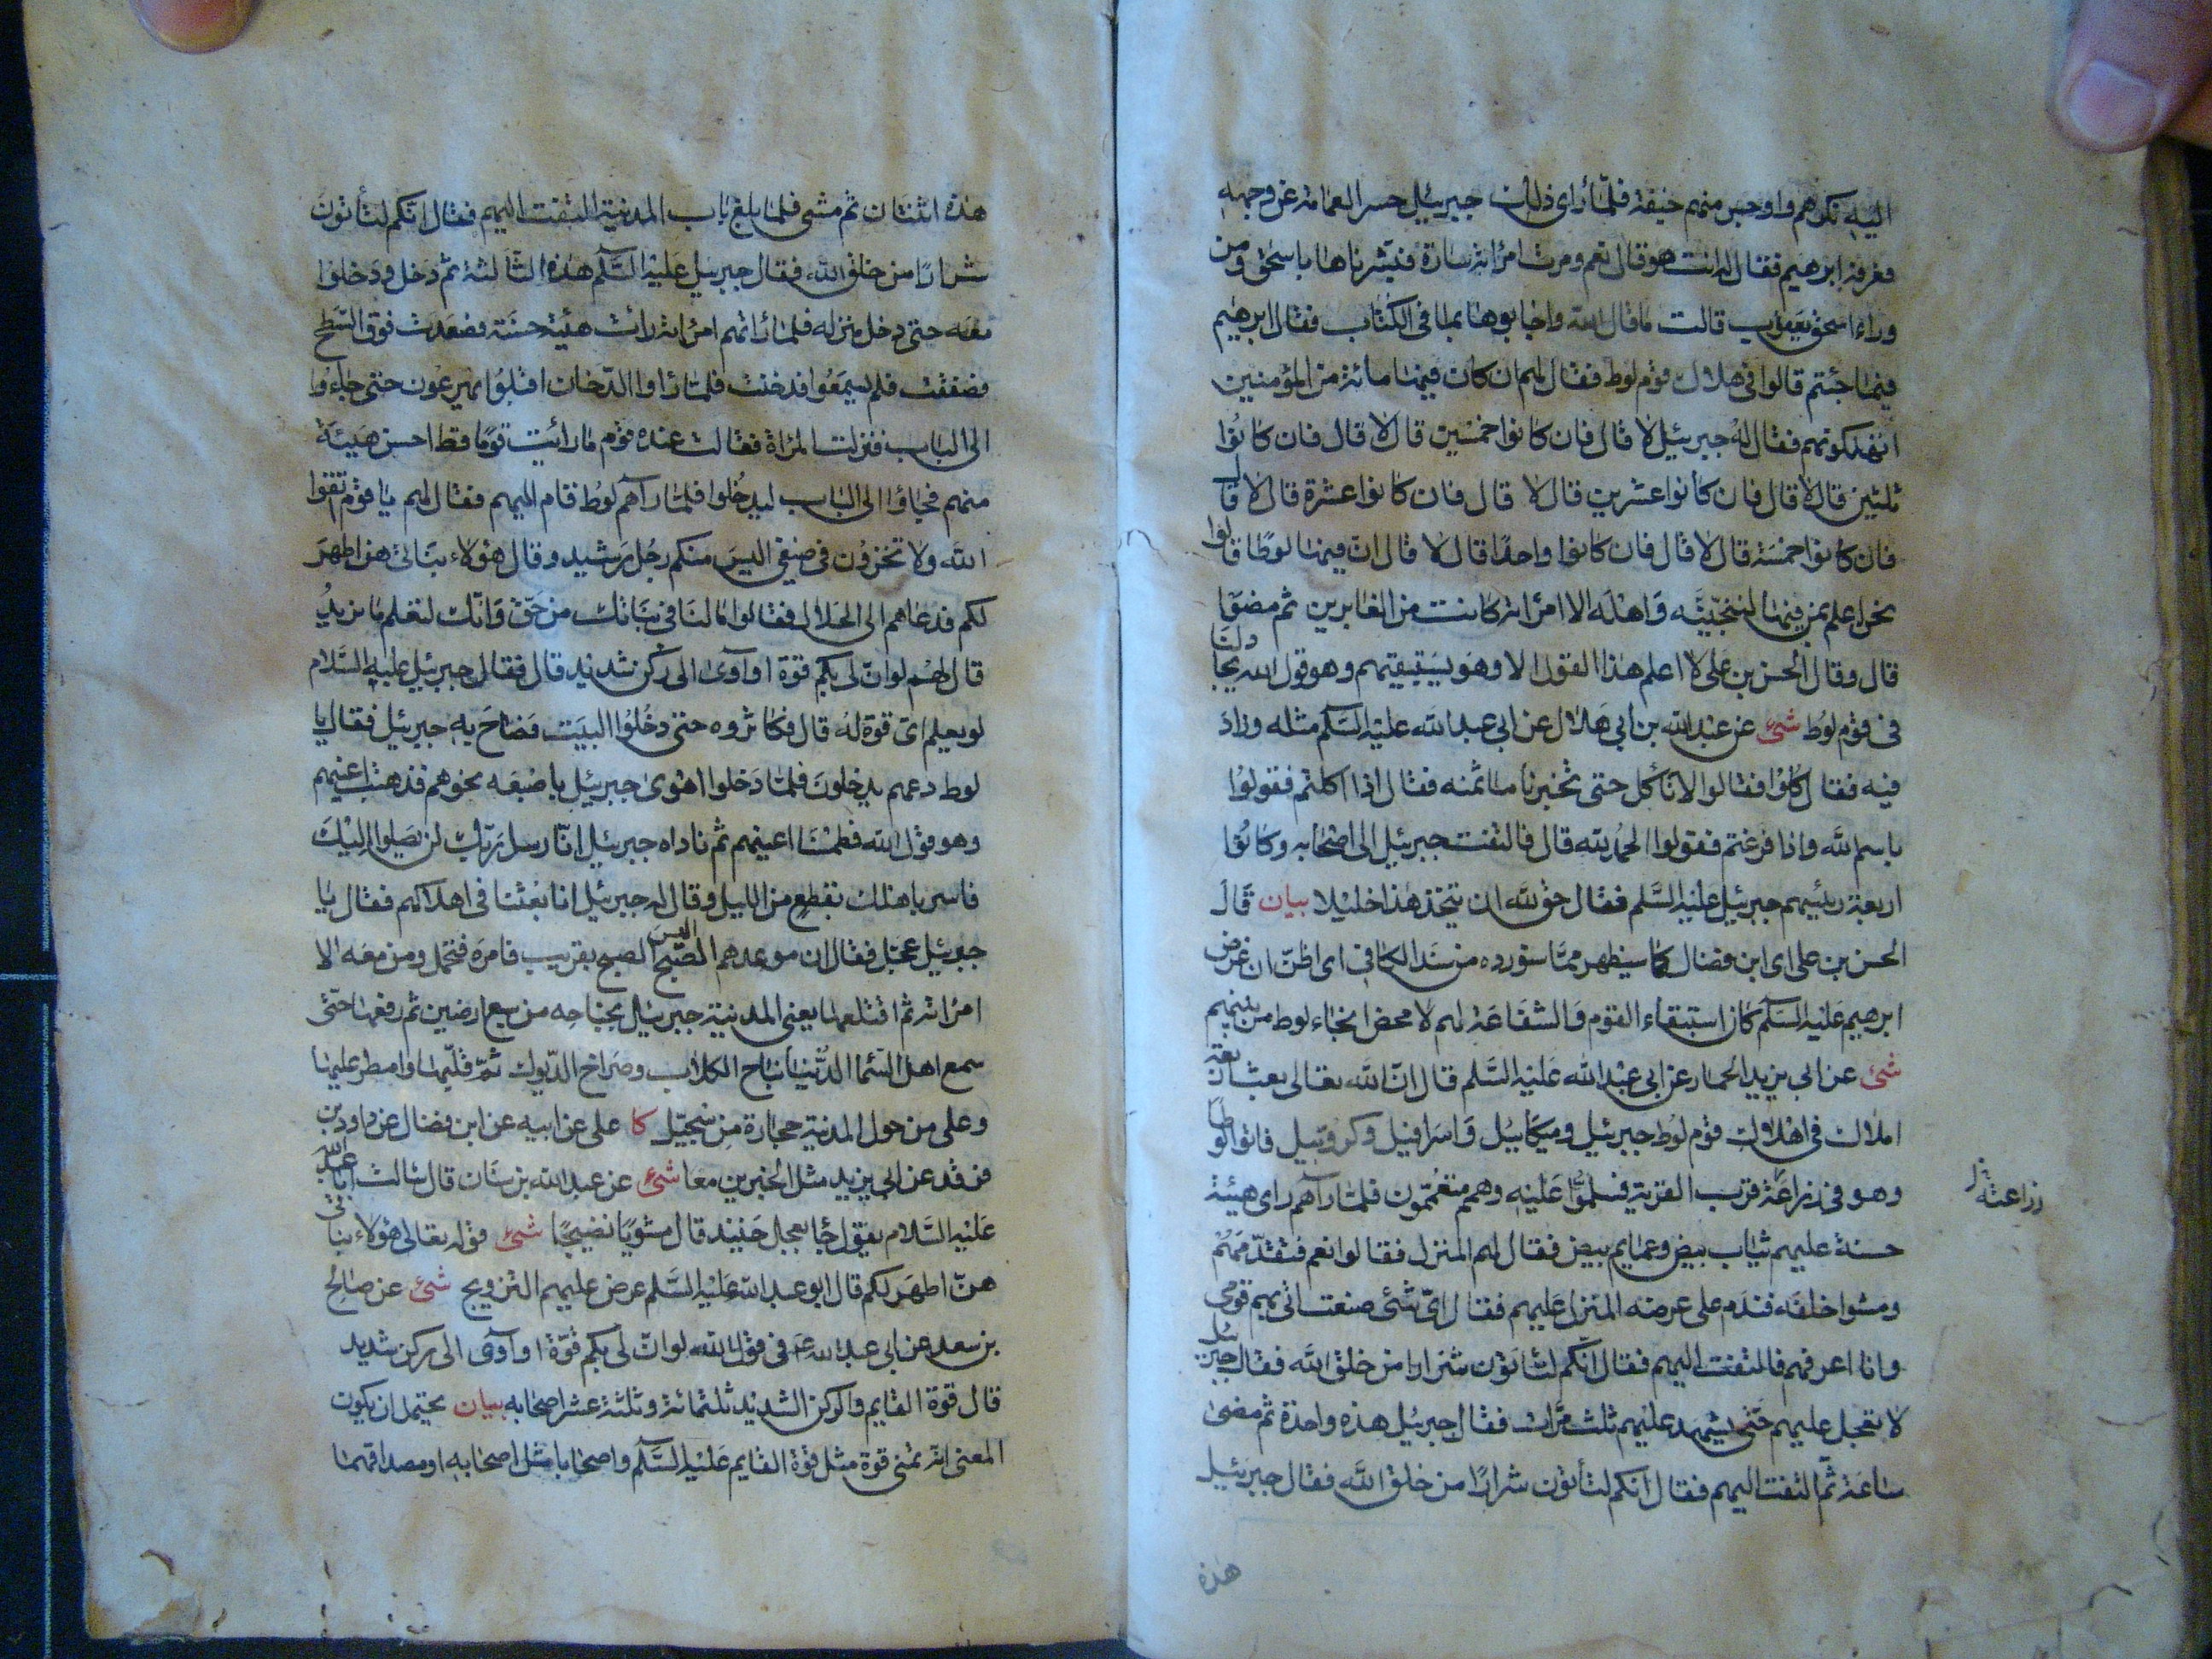 اليه نكرهم واوجس منهم خيفة فلمّا رأى ذلك جبرئيل حسر العمامة عن وجهه
فعرفه ابرهيم فقال له انت هو قال نعم ومرت امرأته سارة فبشرناها باسحق ومن
وراء اسحق يعقوب قالت ما قال الله واجابوها بما في الكتاب فقال ابرهيم
فيما جئتم قالوا في هلاك قوم لوط فقال لهم ان كان فيها مائة من المؤمنين
اتهلكونهم فقال له جبرئيل لا قال فان كانوا خمسين قال لا قال فان كانوا
ثلثين قال لا قال فان كانوا عشرين قال لا قال فان كانوا عشرة قال لا قال
فان كانوا خمسة قال لا قال فان كانوا واحدا قال لا قال ان فيها لوطا قالوا
نحن اعلم بمن فيها لننجينّه واهله الا امرأته كانت من الغابرين ثم مضوا
قال وقال الحسن بن علي لا اعلم هذا القول الا وهو يستبقيهم وهو قول الله يجادلنا
في قوم لوط شئ عن عبد الله بن ابي هلال عن ابي عبد الله عليه السلم مثله وزاد
فيه فقال كلوا فقالوا لا ناكل حتى تخبرنا ما ثمنه فقال اذا اكلتم فقولوا
باسم الله واذا فرغتم فقولوا الحمد لله قال فالتفت جبرئيل الى اصحابه وكانوا
اربعة رئيسهم جبرئيل عليه السلم فقال حق لله ان يتخذ هذا خليلا بيان قال
الحسن بن علي اى ابن فضال كما سيظهر مما سنورده من سند الكافي اى اظن ان غرض
ابرهيم عليه السلم كان استبقاء القوم والشفاعة لهم لا محض انجاء لوط من بينهم
شئ عن ابي يزيد الحمار عن ابي عبد الله عليه السلم قال ان الله تعالى بعث اربعة
املاك في اهلاك قوم لوط جبرئيل وميكائيل واسرافيل وكروبيل فاتوا لوطا
وهو في زراعة قرب القرية فسلموا عليه وهم متعممون فلما رآهم راى هيئة
زراعته
حسنة عليهم ثياب بيض وعمايم بيض فقال لهم المنزل فقالوا نعم فتقدمهم
ومشوا خلفه فندم على عرضه المنزل عليهم فقال اىّ شئ صنعت اتى بهم قومي
وانا اعرفهم فالتفت اليهم فقال انكم لتأتون شرارا من خلق الله فقال جبرئيل
لا تعجل عليهم حتى يشهد عليهم ثلث مرات فقال جبرئيل هذه واحدة ثم مضى
ساعة ثم التفت اليهم فقال انكم لتأتون شرارا من خلق الله فقال جبرئيل
هذه
هذه اثنتان ثم مشى فلما بلغ باب المدينة التفت اليهم فقال انكم لتأتون
شرارا من خلق الله فقال جبرئيل عليه السلم هذه الثالثة ثم دخل ودخلوا
معه حتى دخل منزله فلما رأتهم امرأته رأت هيئة حسنة فصعدت فوق السطح
فصفقت فلم يسمعوا فدخنت فلما رأوا الدخان اقبلوا يهرعون حتى جاءوا
الى الباب فنزلت المرأة فقالت عنده قوم ما رأيت قوما قط احسن هيئة
منهم فجاؤا الى الباب ليدخلوا فلما رآهم لوط قام اليهم فقال لهم يا قوم اتقوا
الله ولا تخزون في ضيفي اليس منكم رجل رشيد وقال هؤلاء بناتي هن اطهر
لكم فدعاهم الى الحلال فقالوا مالنا في بناتك من حق وانك لتعلم ما نريد
قال لهم لو ان لي بكم قوة او آوى الى ركن شديد قال فقال جبرئيل عليه السلام
لو يعلم اىّ قوة له قال فكاثروه حتى دخلوا البيت فصاح به جبرئيل فقال يا
لوط دعهم يدخلون فلما دخلوا اهوى جبرئيل باصبعه نحوهم فذهبت اعينهم
وهو قول الله فطمسنا اعينهم ثم ناداه جبرئيل انا رسل ربك لن يصلوا اليك
فاسر باهلك بقطع من الليل وقال له جبرئيل انا بعثنا في اهلاكهم فقال يا
جبرئيل عجل فقال ان موعدهم الصبح اليس الصبح بقريب فامره فتحمل ومن معه الا
امرأته ثم اقتلعها يعني المدينة جبرئيل بجناحه من سبع ارضين ثم رفعها حتى
سمع اهل السماء الدنيا نباح الكلاب وصراخ الديوك ثم قلبها وامطر عليها
وعلى من حول المدينة حجارة من سجيل كا على عن ابيه عن ابن فضال عن داود بن
فرقد عن ابي يزيد مثل الخبرين معا شئ عن عبد الله بن سنان قال سالت ابا عبد الله
عليه السلام يقول جا بعجل حنيذ قال مشويا نضيجا شئ قوله تعالى هؤلاء بناتي
هن اطهر لكم قال ابو عبد الله عليه السلم عرض عليهم التزويج شئ عن صالح
بن سعد عن ابي عبد الله ع في قول الله لو ان لي بكم قوة او آوى الى ركن شديد
قال قوة القايم والركن الشديد ثلثمائة وثلثة عشر اصحابه بيان يحتمل ان يكون
المعنى انه تمنى قوة مثل قوة القايم عليه السلم واصحابا مثل اصحابه او مصداقهما